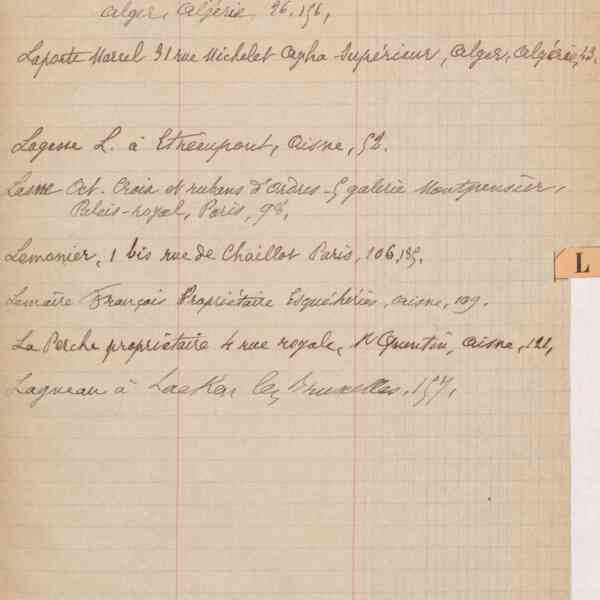 Alger, Algérie 26, 156,
Laporte Marcel 31 rue Michelet Agha Supérieur, Alger, Algérie, 43.
Lagasse L. à Etréaupont, Aisne, 52.
Lasne Oct. Croix et rubans d'Ordres - 5 galerie Montpensier,
Palais-royal, Paris, 98,
Lemonier, 1 bis rue de Chaillot Paris, 106,
L
Lemaire François Propriétaire Esquéhéries, Aisne, 109.
La Perche propriétaire 4 rue royale, St Quentin, Aisne, 121,
Lagneau à Laeken lez Bruxelles, 157,